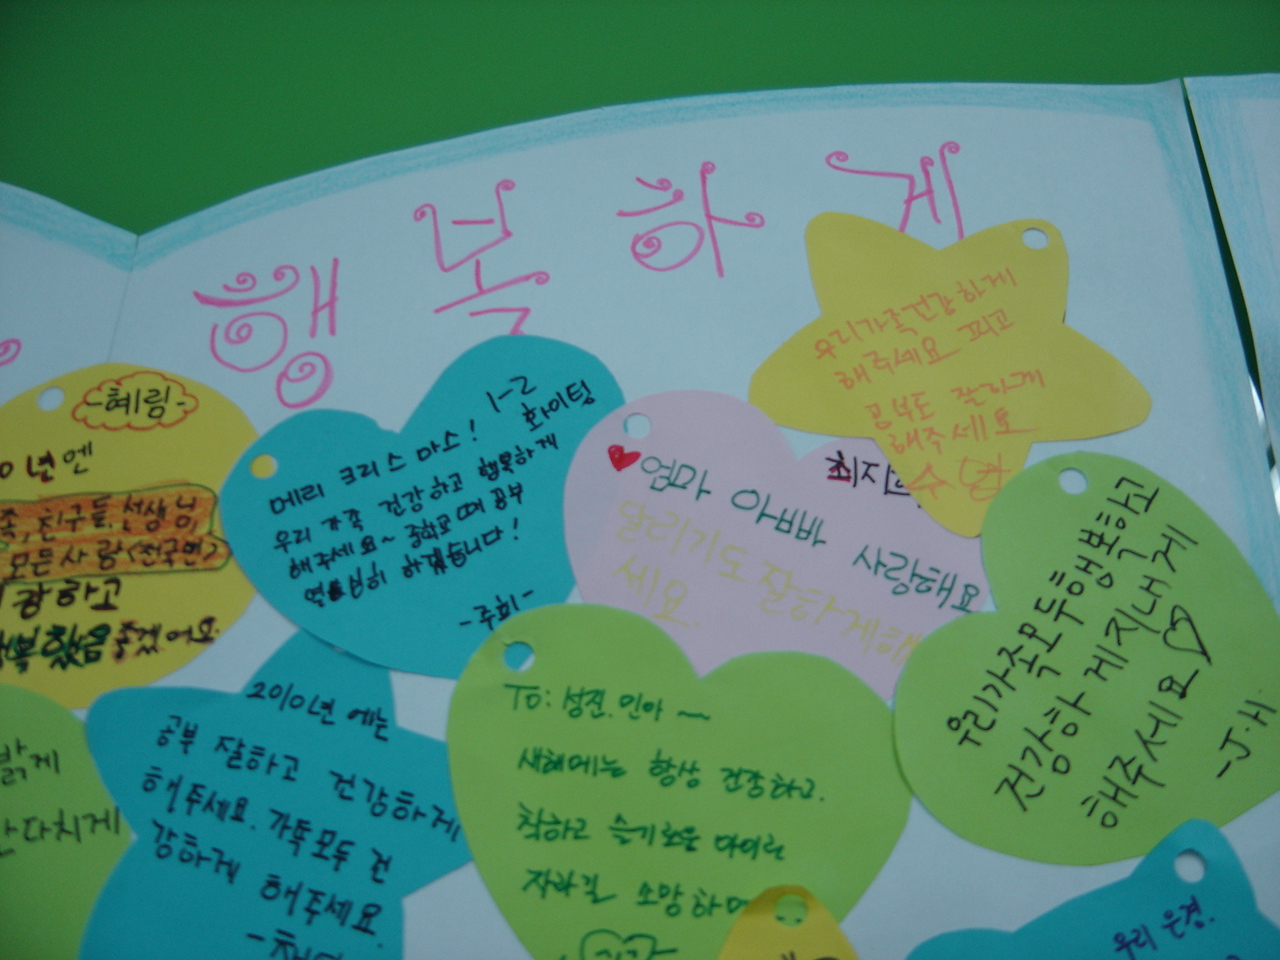 행복하게
-혜림-
0년엔
족, 친구들, 선생님,
모든사람(전국민)
랑하고
복했음 좋겠어요.
1-2
메리 크리스마스! 화이팅
우리 가족 건강하고 행복하게
해주세요~ 중학교때 공부
열심히 하겠습니다!
-주희-
엄마 아빠 사랑해요
달리기도 잘하게해
세요
최지
우리가족건강하게
해주세요 그리고
공부도 잘하게
해주세요
우리가족모두행복하고
건강하게지내게
해주세요♡
-J.H.
밝게
안다치게
2010년에는
공부 잘하고 건강하게
해주세요. 가족모두 건
강하게 해주세요.
To: 성진.민아 ~
새해에는 항상 건강하고.
착하고 슬기로운 아이로
자라길 소망하며
우리 은경.